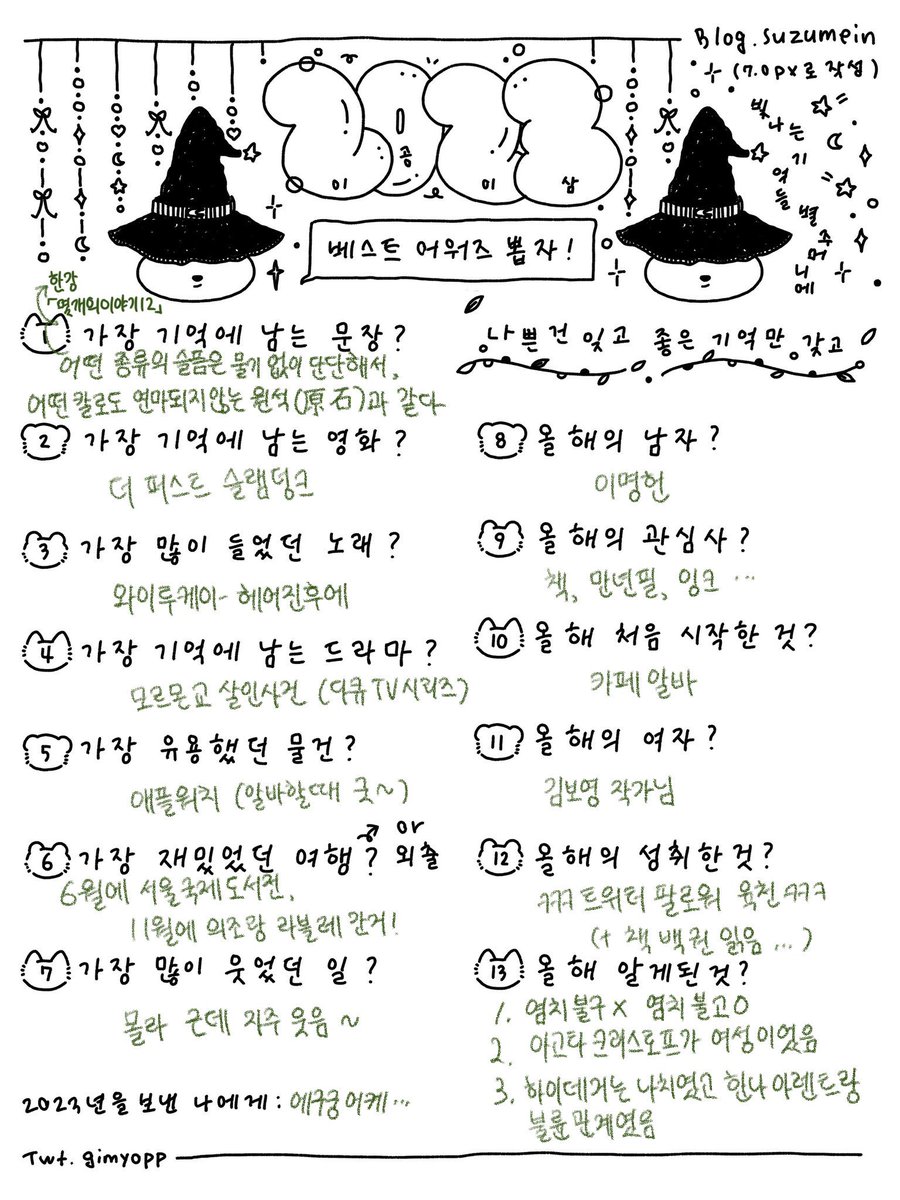 Blog.suzumein
(7.0px로 작성)
이 공 이 삼
빛나는 기억들 별주머니에
베스트 어워즈 뽑자!
한강
「몇개의이야기12」
1 가장 기억에 남는 문장?
어떤 종류의 슬픔은 물기 없이 단단해서,
어떤 칼로도 연마되지않는 원석(原石)과 같다
나쁜건 잊고 좋은 기억만 갖고
2 가장 기억에 남는 영화?
더 퍼스트 슬램덩크
3 가장 많이 들었던 노래?
와이루케이- 헤어진후에
4 가장 기억에 남는 드라마?
모르몬교 살인사건 (다큐TV시리즈)
5 가장 유용했던 물건?
애플워치 (알바할때 굿~)
6 가장 재밌었던 여행? or 외출
6월에 서울국제도서전,
11월에 의조랑 라블레 간거!
7 가장 많이 웃었던 일?
몰라 근데 자주 웃음~
8 올해의 남자?
이명헌
9 올해의 관심사?
책, 만년필, 잉크 ...
10 올해 처음 시작한 것?
카페알바
11 올해의 여자?
김보영 작가님
12 올해의 성취한것?
ㅋㅋㅋ트위터 팔로워 육천ㅋㅋㅋ
(+ 책 백권 읽음...)
13 올해 알게된것?
1. 염치불구X 염치불고O
2. 아고타크리스토프가 여성이었음
3. 하이데거는 나치였고 한나아렌트랑
불륜관계였음
2023년을 보낸 나에게: 에구궁어케...
Twt. gimyopp